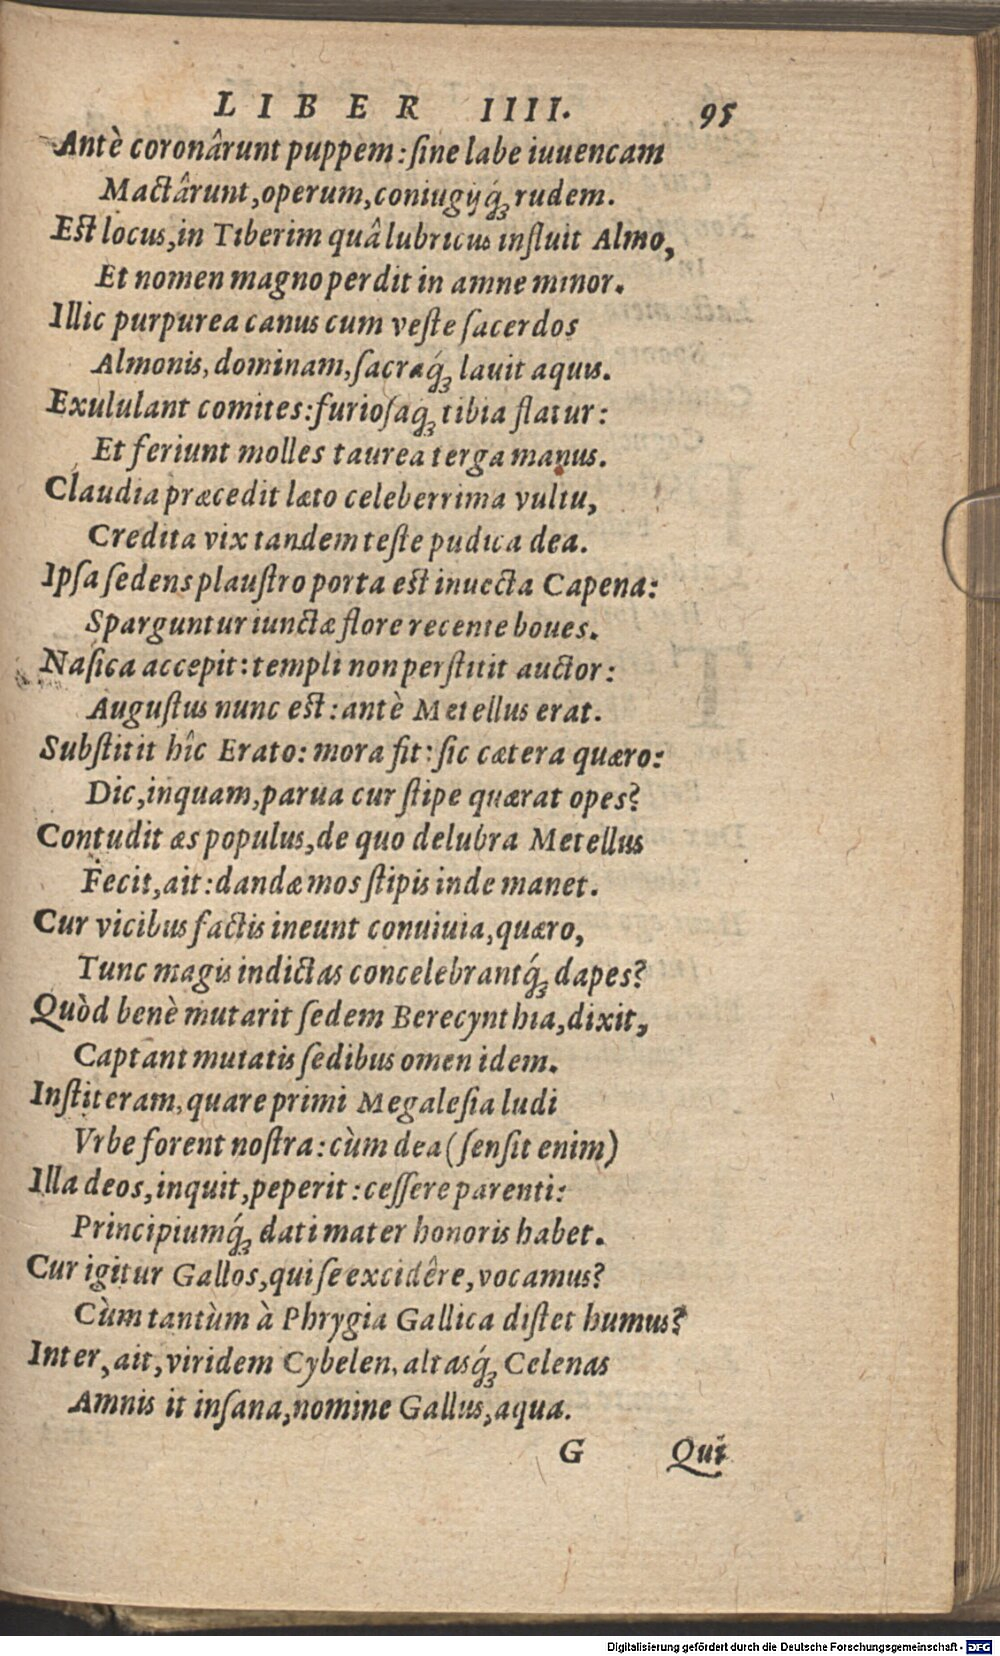 LIBER IIII. 95
Antè coronârunt puppem: ſine labe iuuencam
Mactârunt, operum, coniugijq́ꝫ rudem.
Est locus, in Tiberim quâ lubricus influit Almo,
Et nomen magno perdit in amne minor.
Illic purpurea canus cum veſte ſacerdos
Almonis, dominam, ſacraq́ꝫ lauit aquis.
Exululant comites: furioſaq́ꝫ tibia flatur:
Et feriunt molles taurea terga manus.
Claudia præcedit læto celeberrima vultu,
Credita vix tandem teſte pudica dea.
Ipſa ſedens plauſtro porta est inuecta Capena:
Sparguntur iunctæ flore recente boues.
Naſica accepit: templi non perſtitit auctor:
Auguſtus nunc est: antè Metellus erat.
Subſtitit hîc Erato: mora fit: ſic cætera quæro:
Dic, inquam, parua cur ſtipe quærat opes?
Contudit æs populus, de quo delubra Metellus
Fecit, ait: dandæ mos ſtipis inde manet.
Cur vicibus factis ineunt conuiuia, quæro,
Tunc magis indictas concelebrantq́ꝫ dapes?
Quòd benè mutarit ſedem Berecynthia, dixit,
Captant mutatis ſedibus omen idem.
Inſtiteram, quare primi Megaleſia ludi
Vrbe forent noſtra: cùm dea (ſenſit enim)
Illa deos, inquit, peperit: ceſſere parenti:
Principiumq́ꝫ dati mater honoris habet.
Cur igitur Gallos, qui ſe excidêre, vocamus?
Cùm tantùm à Phrygia Gallica diſtet humus?
Inter, ait, viridem Cybelen, altasq́ꝫ Celenas
Amnis it inſana, nomine Gallus, aqua.
G Qui
Digitalisierung gefördert durch die Deutsche Forschungsgemeinschaft - DFG